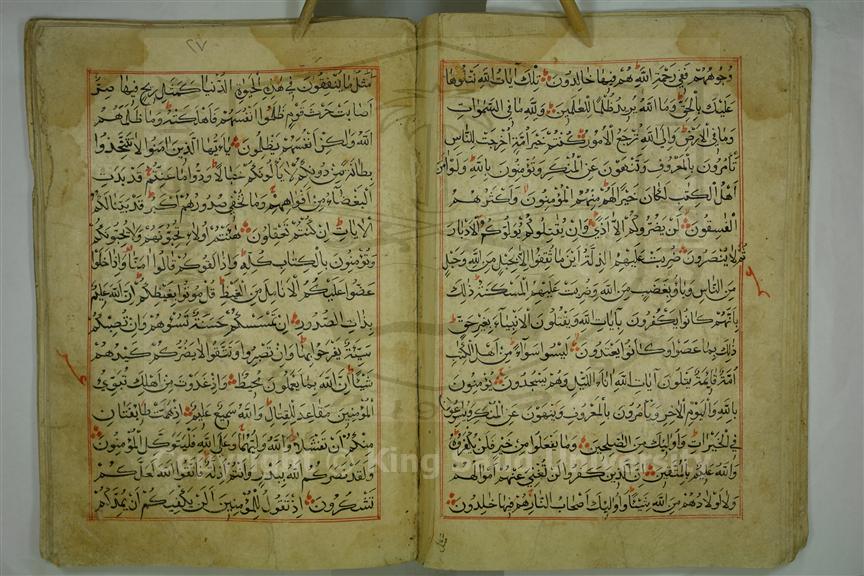 وجوههم ففي رحمة الله هم فيها خالدون تلك آيات الله نتلوها
عليك بالحق وما الله يريد ظلما للعالمين ولله ما في السموات
وما في الارض والى الله ترجع الامور كنتم خير امة اخرجت للناس
تأمرون بالمعروف وتنهون عن المنكر وتؤمنون بالله ولو امن
اهل الكتب لكان خيرا لهم منهم المؤمنون واكثرهم
الفسقون لن يضروكم الا اذى وان يقتلوكم يولوكم الادبار
ثم لا ينصرون ضربت عليهم الذلة اين ما ثقفوا الا بحبل من الله وحبل
من الناس وباؤ بغضب من الله وضربت عليهم المسكنة ذلك
بانهم كانوا يكفرون بآيات الله ويقتلون الانبياء بغير حق
ذلك بما عصوا وكانوا يعتدون ليسوا سواء من اهل الكتب
امة قائمة يتلون آيات الله اناء الليل وهم يسجدون يؤمنون
بالله واليوم الاخر ويأمرون بالمعروف وينهون عن المنكر ويسارعون
في الخيرات واولئك من الصلحين وما يفعلوا من خير فلن يكفروه
والله عليم بالمتقين ان الذين كفروا لن تغني عنهم اموالهم
ولا اولادهم من الله شيئا واولئك اصحاب النار هم فيها خلدون
٢٧
مثل ما ينفقون في هذه الحيوة الدنيا كمثل ريح فيها صر
اصابت حرث قوم ظلموا انفسهم فاهلكته وما ظلمهم
الله ولكن انفسهم يظلمون يا ايها الذين امنوا لا تتخذوا
بطانة من دونكم لا يألونكم خبالا ودوا ما عنتم قد بدت
البغضاء من افواههم وما تخفي صدورهم اكبر قد بينا لكم
الايات ان كنتم تعقلون هاانتم اولاء تحبونهم ولا يحبونكم
وتؤمنون بالكتاب كله واذا لقوكم قالوا امنا واذا خلوا
عضوا عليكم الانامل من الغيظ قل موتوا بغيظكم ان الله عليم
بذات الصدور ان تمسسكم حسنة تسؤهم وان تصبكم
سيئة يفرحوا بها وان تصبروا وتتقوا لا يضركم كيدهم
شيئا ان الله بما يعملون محيط واذ غدوت من اهلك تبوئ
المؤمنين مقاعد للقتال والله سميع عليم اذ همت طائفتان
منكم ان تفشلا والله وليهما وعلى الله فليتوكل المؤمنون
ولقد نصركم الله ببدر وانتم اذلة فاتقوا الله لعلكم
تشكرون اذ تقول للمؤمنين الن يكفيكم ان يمدكم
Copyright © King Saud University